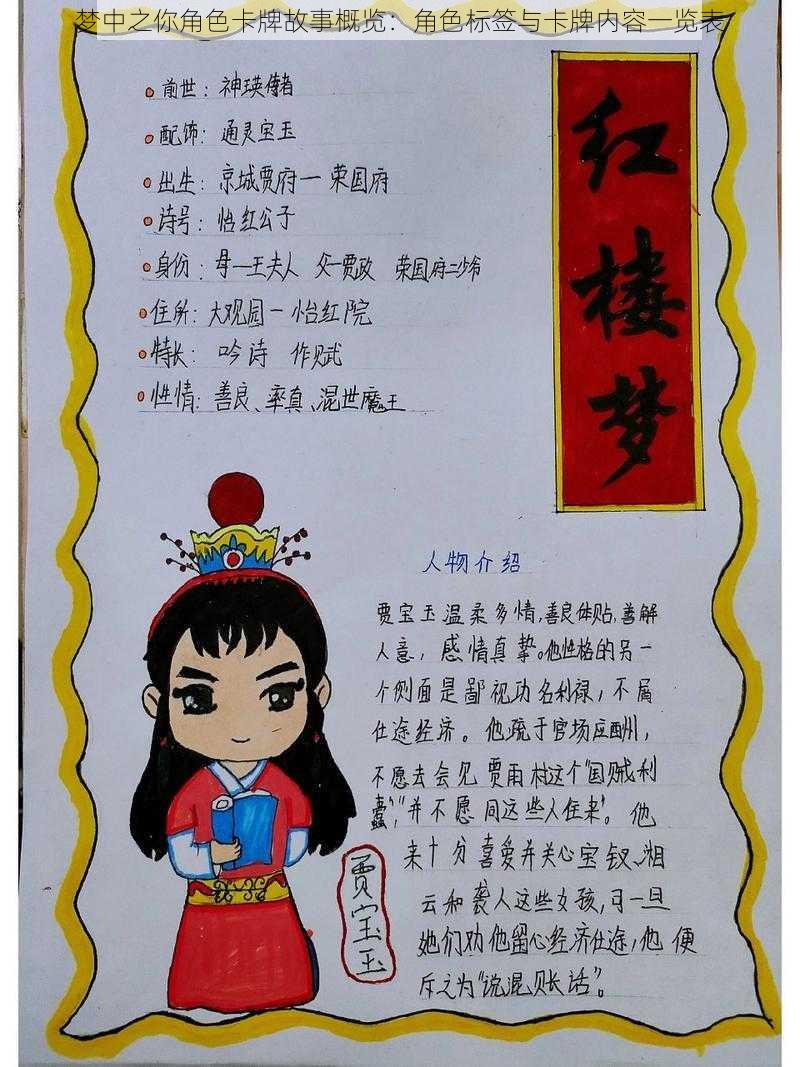 梦中之你角色卡牌故事概览：角色标签与卡牌内容一览表
前世：神瑛侍者
配饰：通灵宝玉
出生：京城贾府一荣国府
诗号：怡红公子
身份：母一王夫人 父一贾政 荣国府二少爷
住所：大观园一怡红院
特长：吟诗 作赋
性情：善良、率真、混世魔王
红楼梦
人物介绍
贾宝玉温柔多情,善良体贴,善解
人意，感情真挚。他性格的另一
个侧面是鄙视功名利禄，不屑
仕途经济。他疏于官场应酬，
不愿去会见贾雨村这个"国贼禄
蠹",并不愿同这些人往来。他
来十分喜爱并关心宝钗、湘
云和袭人这些女孩,可一旦
她们劝他留心经济仕途,他便
斥之为"说混账话"。
贾宝玉